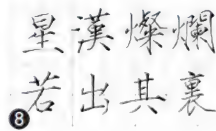 星漢燦爛
若出其裏
8